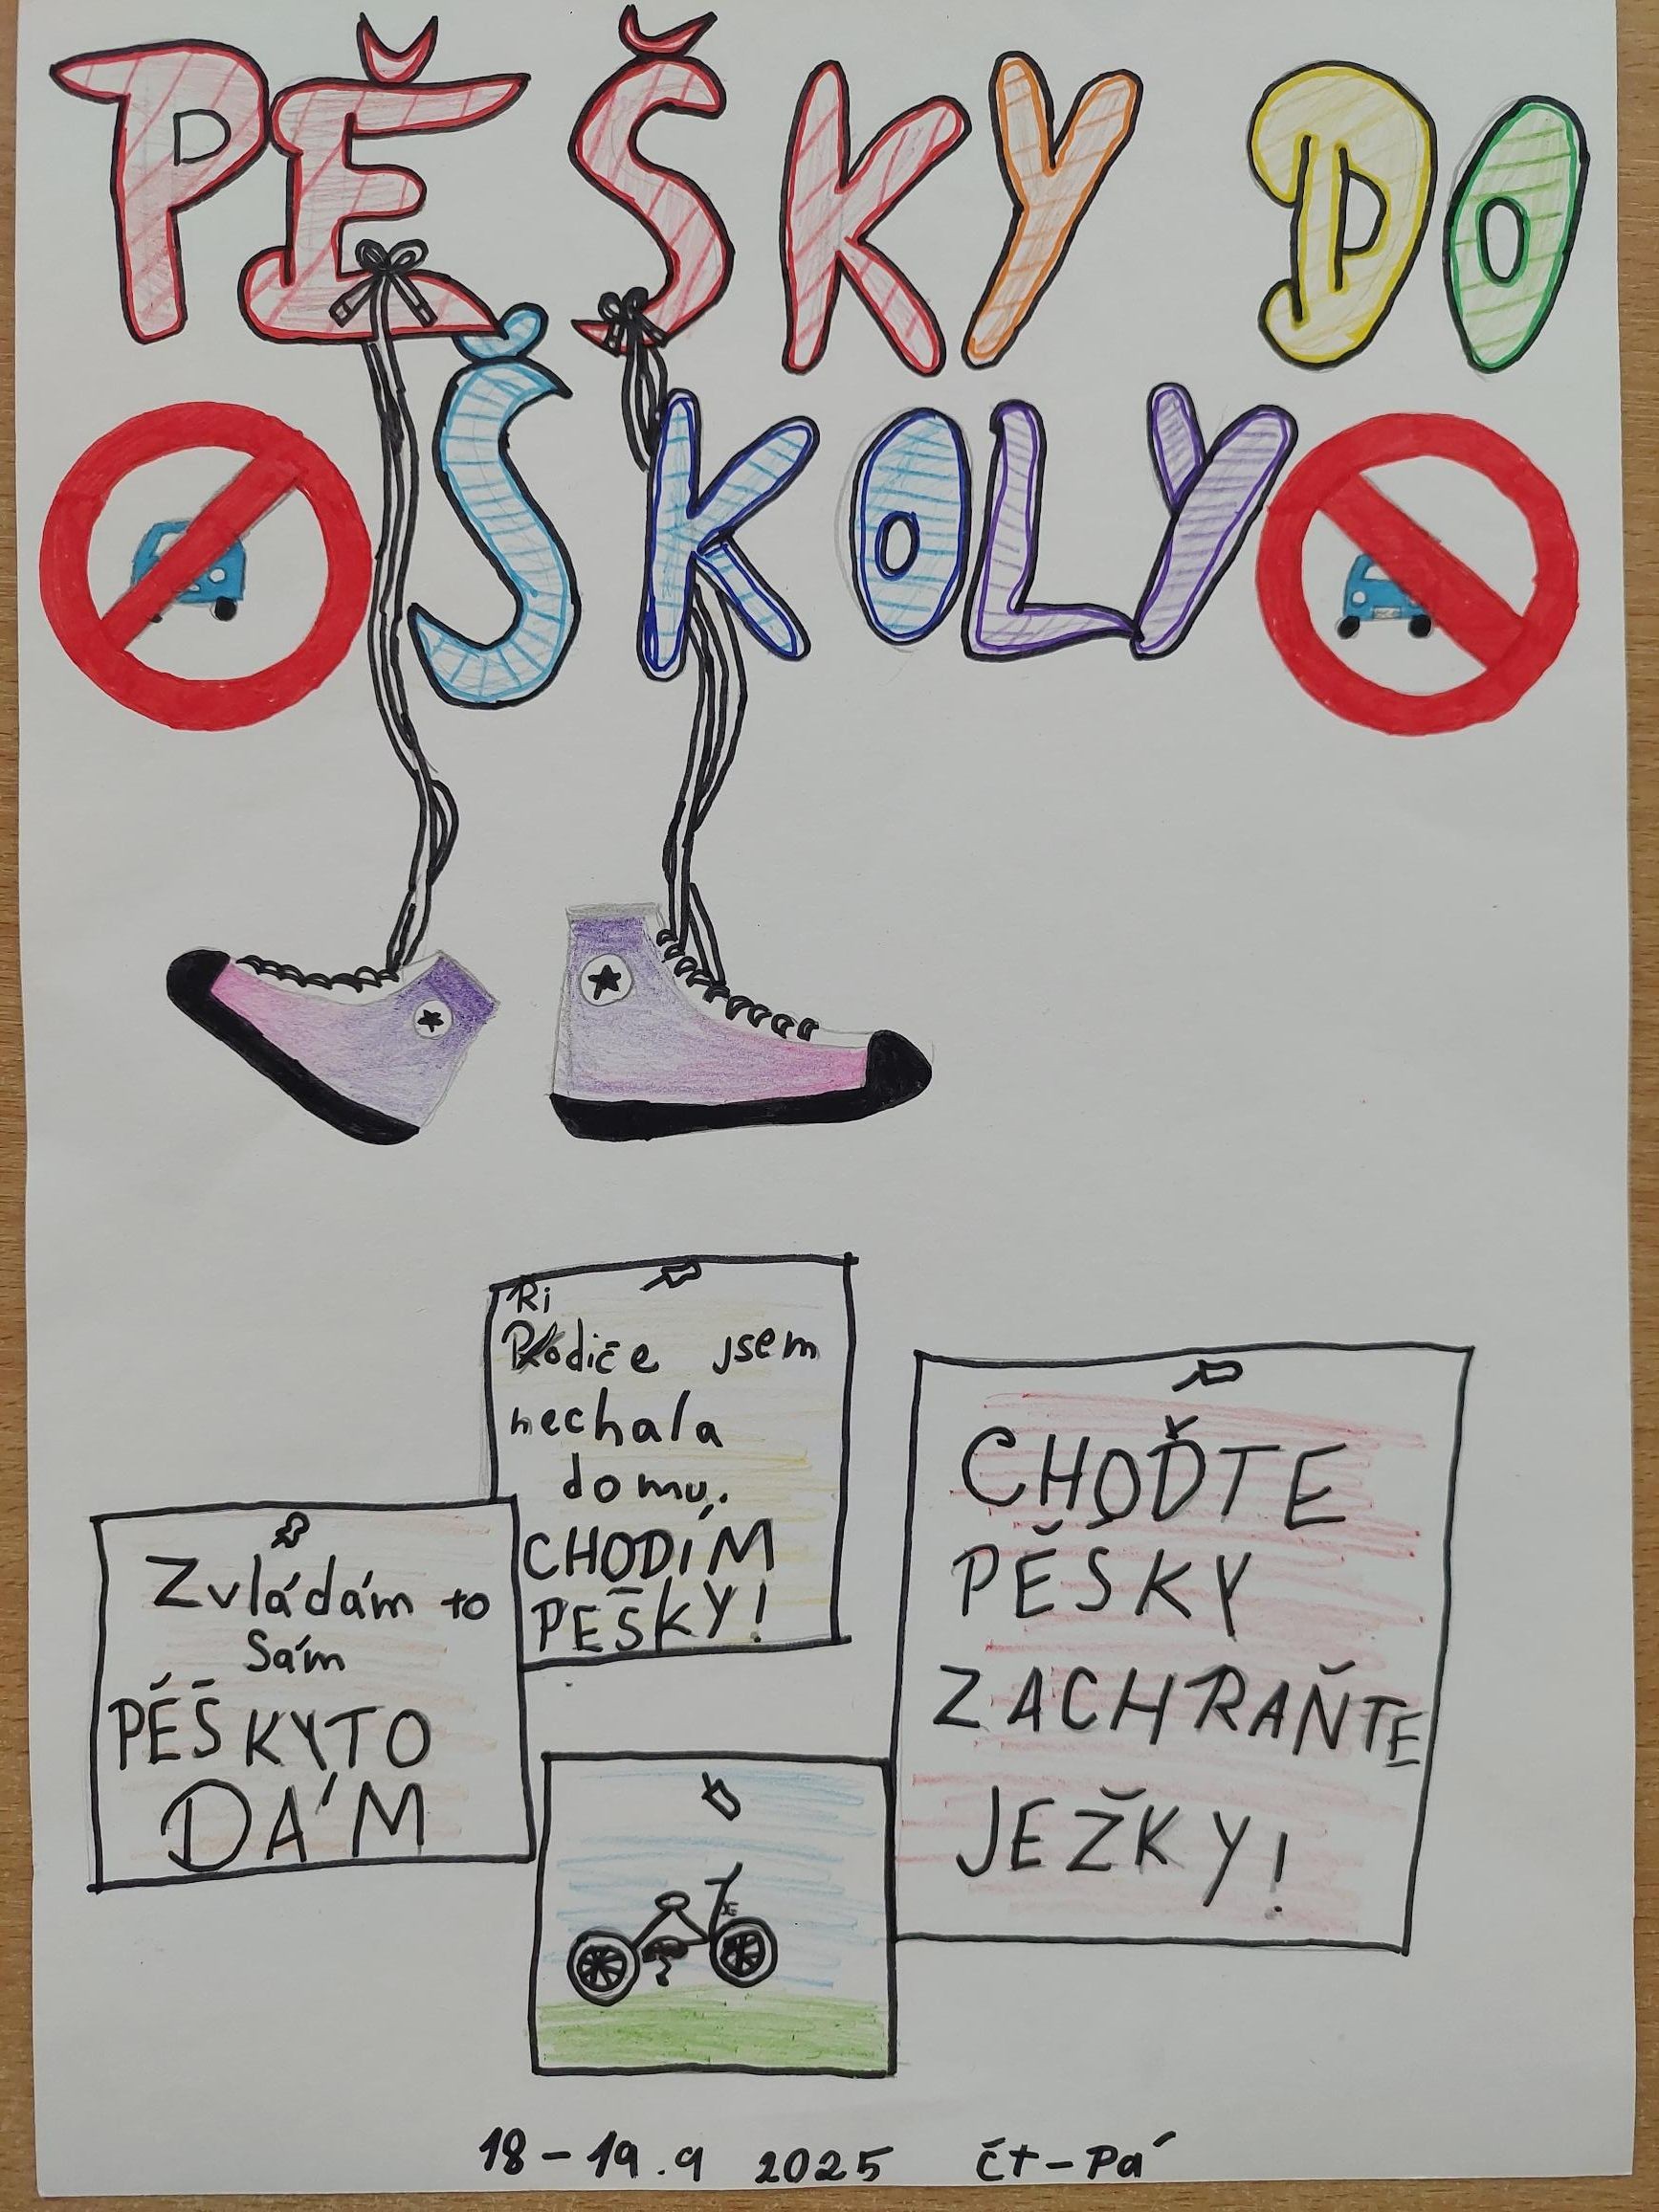 PĚŠKY DO
ŠKOLY
Ri
Rodiče jsem
nechala
domu.
CHODÍM
PEŠKY!
Zvládám to
Sám
PĚŠKY TO
DÁM
CHOĎTE
PĚSKY
ZACHRAŇTE
JEŽKY!
18-19.9 2025 čt-Pá